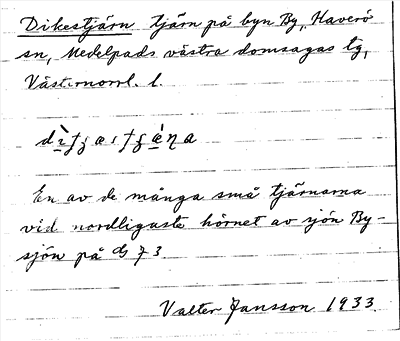 Dikestjärn tjärn på byn By, Haverö
sn, Medelpads västra domsagas tg,
Västernorrl. l.
En av de många små tjärnarna
vid nordligaste hörnet av sjön By-
sjön på G 73
Valter Jansson 1933.